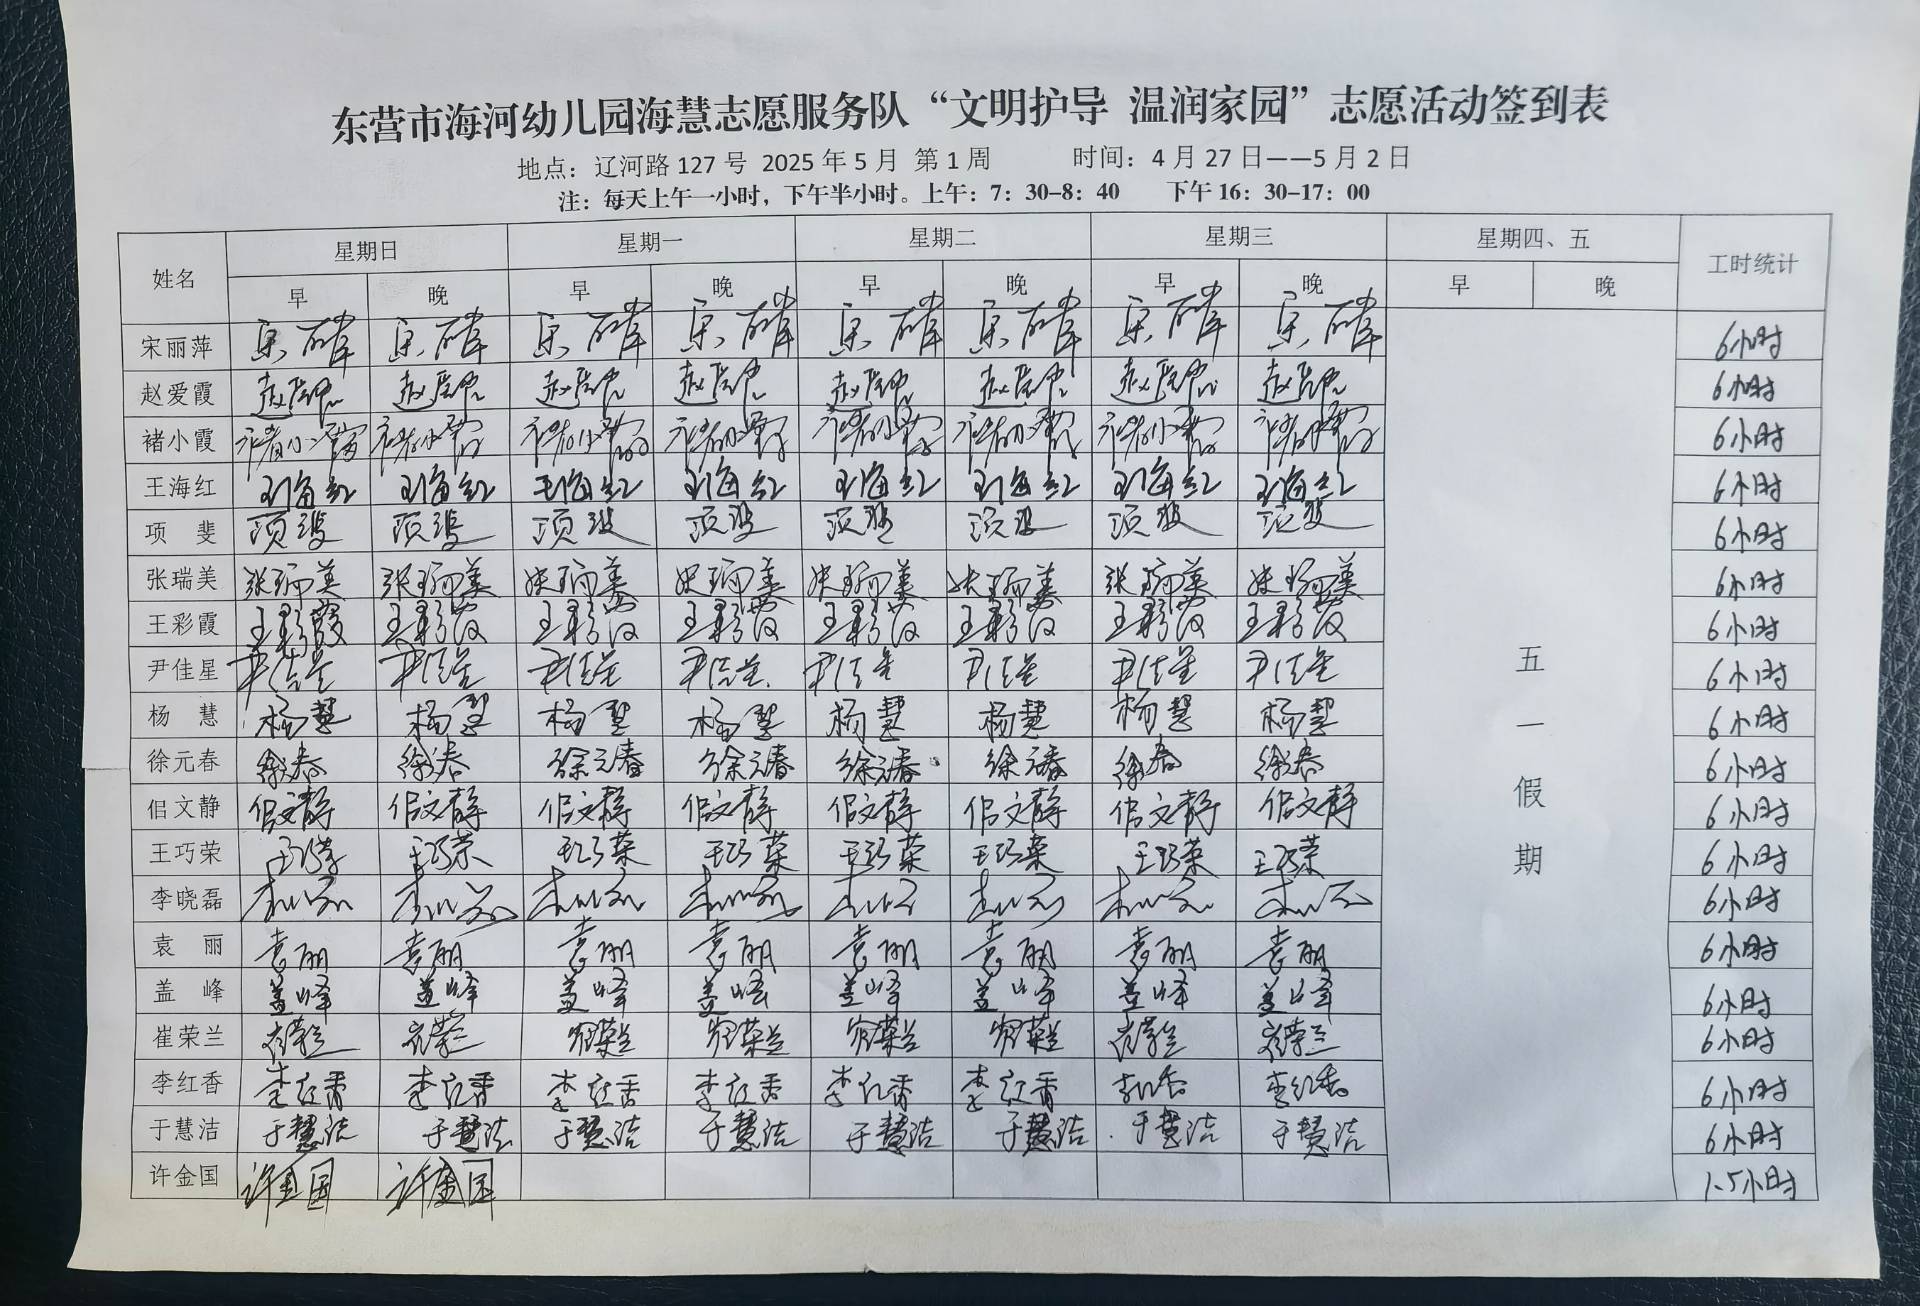 东营市海河幼儿园海慧志愿服务队“文明护导 温润家园”志愿活动签到表
地点：辽河路 127 号 2025 年 5 月 第 1 周 时间：4 月 27 日——5 月 2 日
注：每天上午一小时，下午半小时。上午：7：30-8：40 下午 16：30-17：00
姓名 星期日 星期一 星期二 星期三 星期四、五 工时统计
早 晚 早 晚 早 晚 早 晚 早 晚
宋丽萍 宋丽萍 宋丽萍 宋丽萍 宋丽萍 宋丽萍 宋丽萍 宋丽萍 宋丽萍 6小时
赵爱霞 赵爱霞 赵爱霞 赵爱霞 赵爱霞 赵爱霞 赵爱霞 赵爱霞 赵爱霞 6小时
褚小霞 褚小霞 褚小霞 褚小霞 褚小霞 褚小霞 褚小霞 褚小霞 褚小霞 6小时
王海红 王海红 王海红 王海红 王海红 王海红 王海红 王海红 王海红 6小时
项 斐 项斐 项斐 项斐 项斐 项斐 项斐 项斐 项斐 6小时
张瑞美 张瑞美 张瑞美 张瑞美 张瑞美 张瑞美 张瑞美 张瑞美 张瑞美 6小时
王彩霞 王彩霞 王彩霞 王彩霞 王彩霞 王彩霞 王彩霞 王彩霞 王彩霞 6小时
尹佳星 尹佳星 尹佳星 尹佳星 尹佳星 尹佳星 尹佳星 尹佳星 尹佳星 6小时
杨 慧 杨慧 杨慧 杨慧 杨慧 杨慧 杨慧 杨慧 杨慧 6小时
徐元春 徐元春 徐元春 徐元春 徐元春 徐元春 徐元春 徐元春 徐元春 6小时
佀文静 佀文静 佀文静 佀文静 佀文静 佀文静 佀文静 佀文静 佀文静 6小时
王巧荣 王巧荣 王巧荣 王巧荣 王巧荣 王巧荣 王巧荣 王巧荣 王巧荣 6小时
李晓磊 李晓磊 李晓磊 李晓磊 李晓磊 李晓磊 李晓磊 李晓磊 李晓磊 6小时
袁 丽 袁丽 袁丽 袁丽 袁丽 袁丽 袁丽 袁丽 袁丽 6小时
盖 峰 盖峰 盖峰 盖峰 盖峰 盖峰 盖峰 盖峰 盖峰 6小时
崔荣兰 崔荣兰 崔荣兰 崔荣兰 崔荣兰 崔荣兰 崔荣兰 崔荣兰 崔荣兰 6小时
李红香 李红香 李红香 李红香 李红香 李红香 李红香 李红香 李红香 6小时
于慧洁 于慧洁 于慧洁 于慧洁 于慧洁 于慧洁 于慧洁 于慧洁 于慧洁 6小时
许金国 许金国 许金国 1.5小时
五
一
假
期